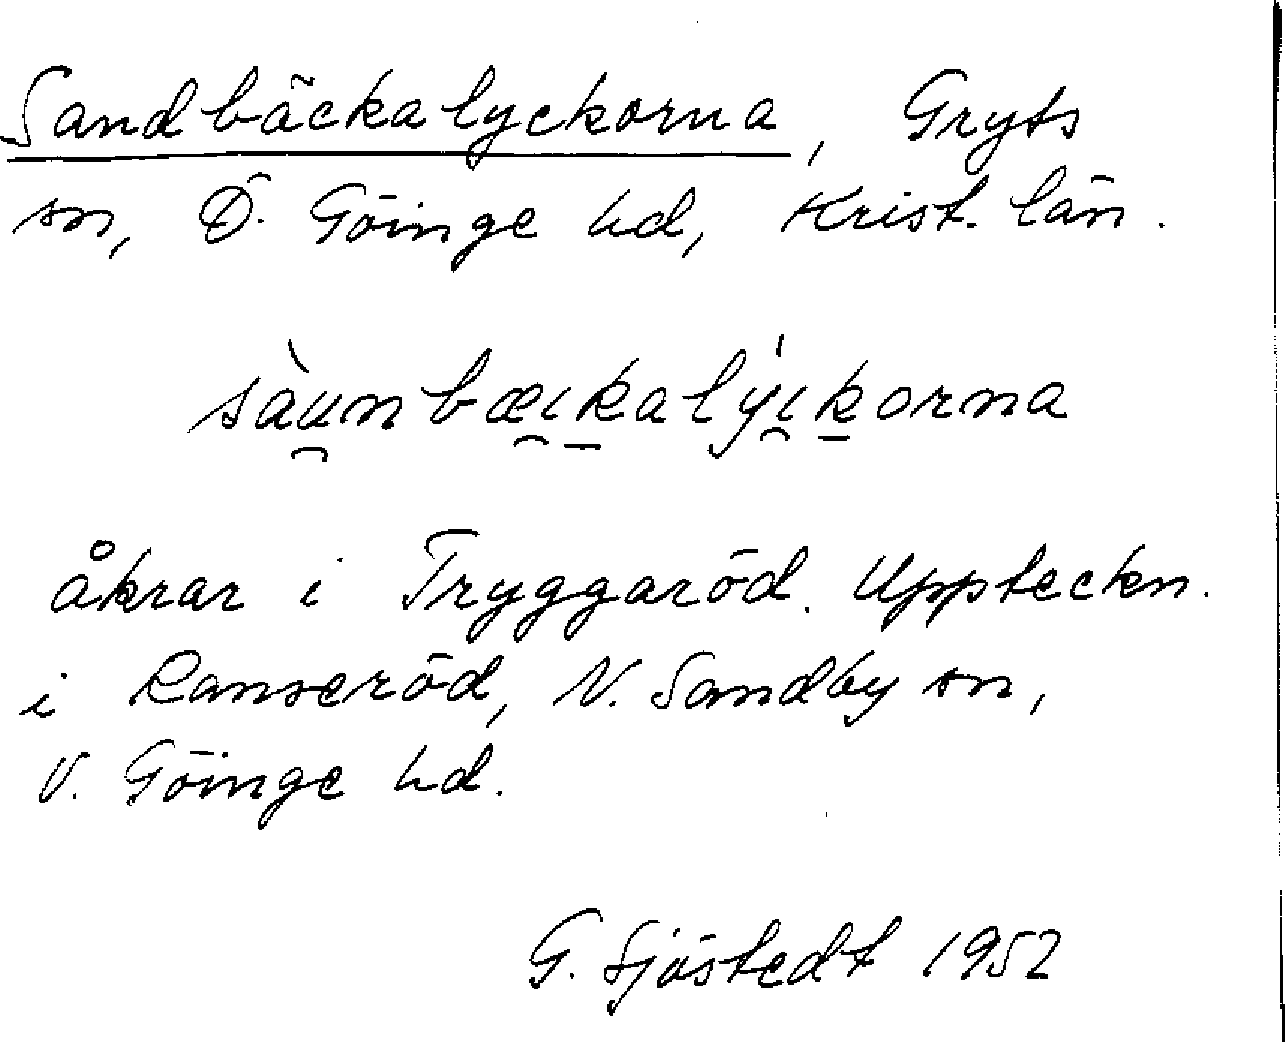 Sandbäckalyckorna, Gryts
sn, Ö. Göinge hd, Krist. län.
sàu̯nbæi̯ḵalýi̯ḵorna
åkrar i Tryggaröd. Uppteckn.
i Ranseröd, N. Sandby sn,
V. Göinge hd.
G. Sjöstedt 1952